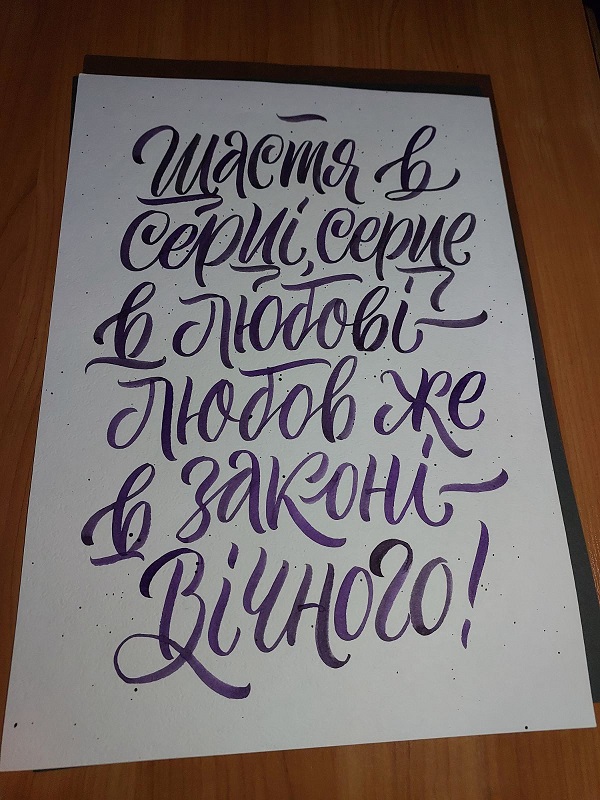 Щастя в
серці, серце
в любові
любов же
в законі
Вічного!